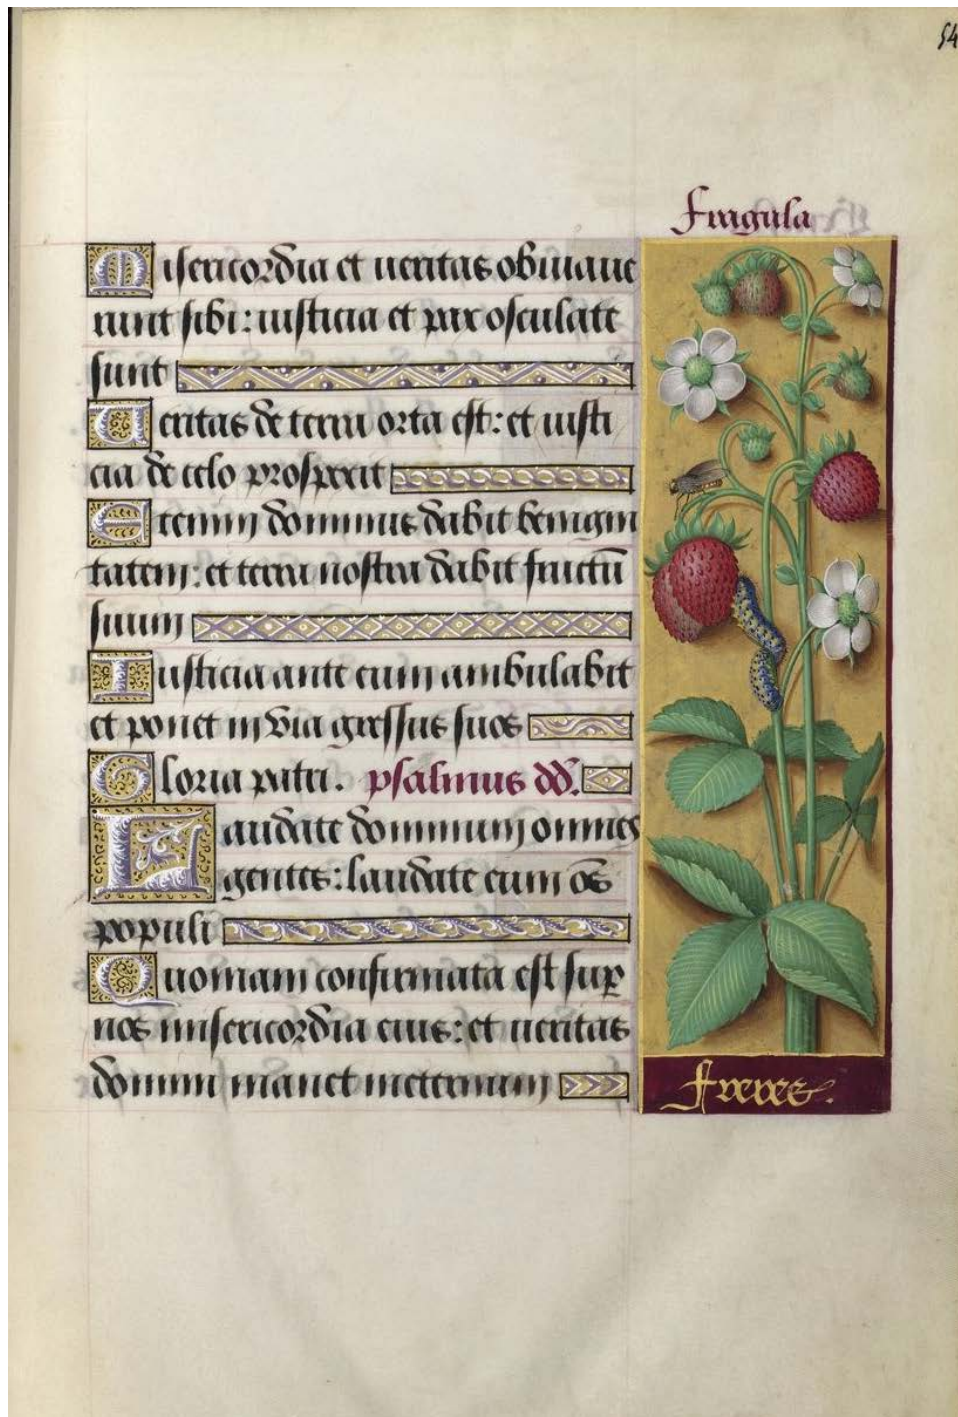 54
Fragula
Misericordia et ueritas obuiaue
runt sibi: iusticia et pax osculate
sunt
Ueritas de terra orta est: et iusti
cia de celo prospexit
Etenim dominus dabit benigni
tatem: et terra nostra dabit fructū
suum
Iusticia ante eum ambulabit
et ponet in via gressus suos
Gloria patri. psalmus dd̄.
Laudate dominum omnes
gentes: laudate eum oēs
populi
Quoniam confirmata est sup̄
nos misericordia eius: et ueritas
domini manet ineternum
freres.